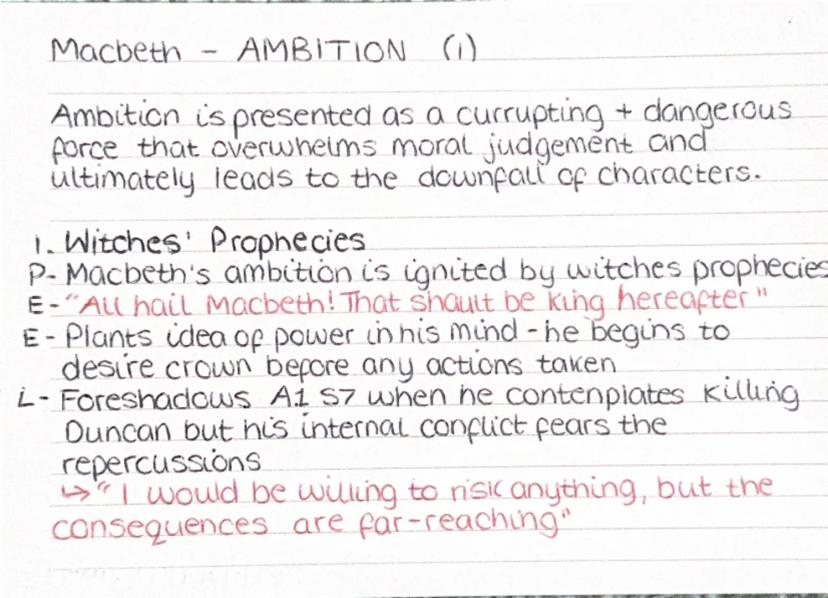 Macbeth - AMBITION (1)
Ambition is presented as a currupting + dangerous
force that overwhelms moral judgement and
ultimately leads to the downfall of characters.
1. Witches' Prophecies
P- Macbeth's ambition is ignited by witches prophecies
E- "All hail Macbeth! That shault be king hereafter"
E- Plants idea of power in his mind - he begins to
desire crown before any actions taken
L- Foreshadows A1 S7 when he contenplates killing
Duncan but his internal conflict fears the
repercussions
↳ "I would be willing to risk anything, but the
consequences are far-reaching"